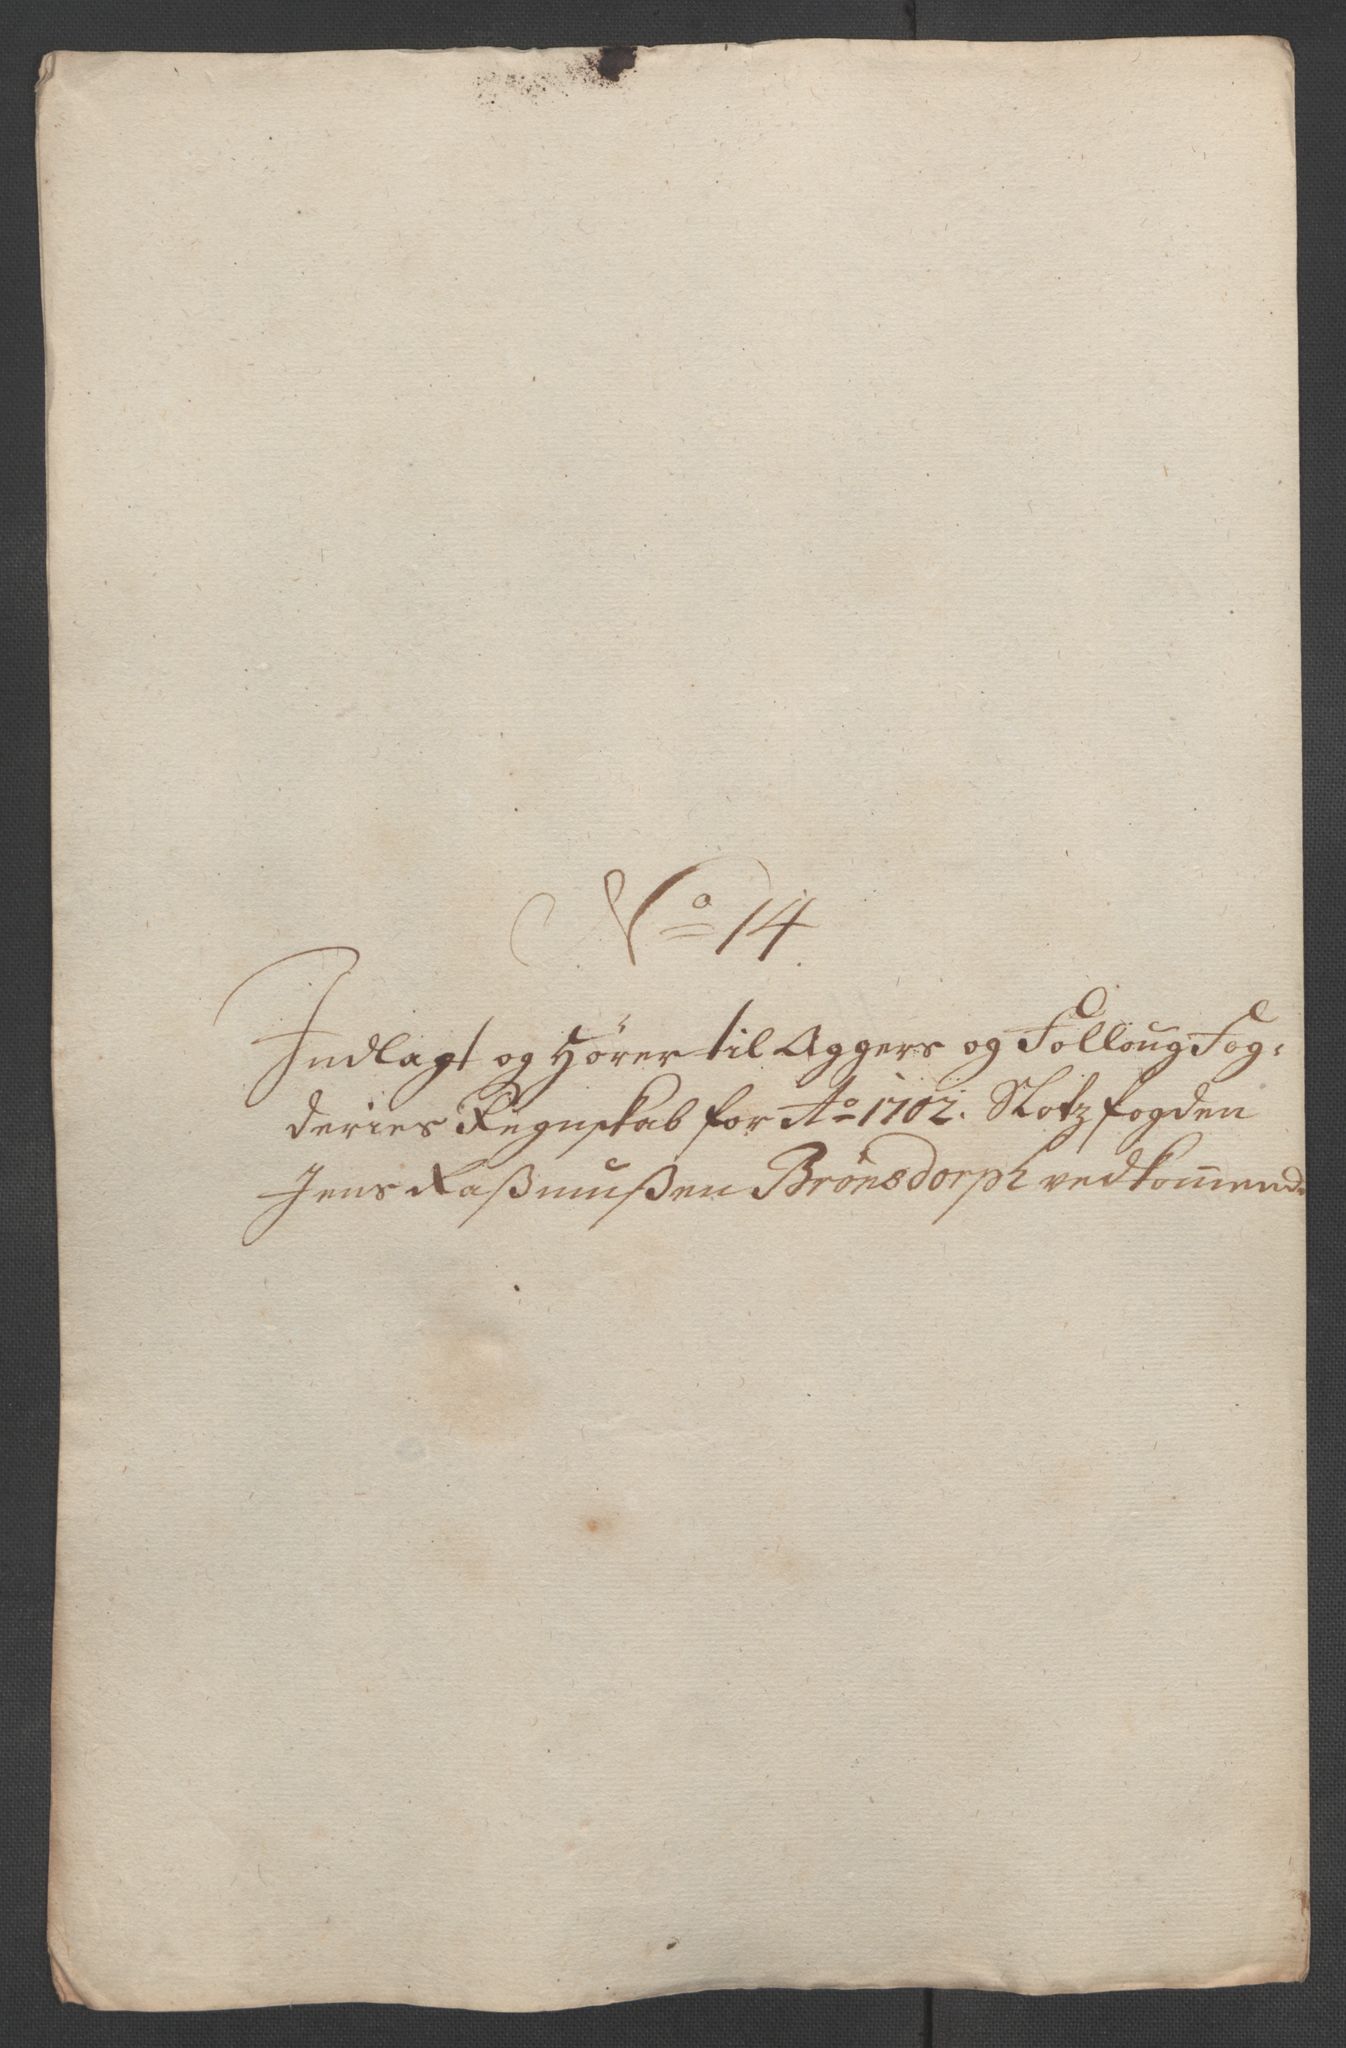 No 14
Indlagt og Hører til Aggers og Folloug Fog:
deries Regnskab for Ao 1702. Slotzfogden
Jens Raßmußen Brønsdorph vedkom̄ende